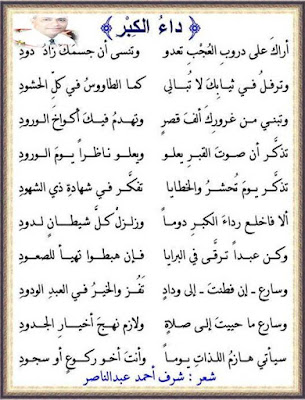 داءُ الكِبْر
أراكَ على دروبِ العُجْبِ تعدو وتنسى أن جسمَكَ زَادُ دودِ
وترفلُ في ثيابِكَ لا تُبالي كما الطاووسُ في كلِّ الحشودِ
وتبني من غرورِكَ ألفَ قصرٍ وتهدمُ فيكَ أكواخَ الورودِ
تذكَّر أن صوتَ القبرِ يعلو ويعلو ناظراً يومَ الورودِ
تذكَّر يومَ تُحشرُ والخطايا تفكَّر في شهادةِ ذي الشهودِ
ألا فاخلع رداءَ الكبرِ دوماً وزلزلْ كلَّ شيطانٍ لدودِ
وكن عبداً ترقَّى في البرايا فإن هبطوا تهيأ للصعودِ
وسارع - إن فطنتَ - إلى ودادٍ تَفُز والخيرُ في العبدِ الودودِ
وسارع ما حييتَ إلى صلاةٍ ولازم نهجَ أخيارِ الجدودِ
سيأتي هازمُ اللذاتِ يوماً وأنتَ أخو ركوعٍ أو سجودِ
شعر : شرف أحمد عبدالناصر